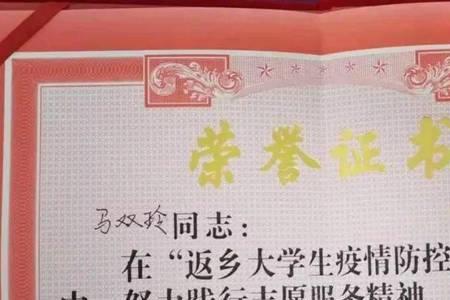 荣誉证书
马双玲同志：
在“返乡大学生疫情防控
中，努力践行志愿服务精神